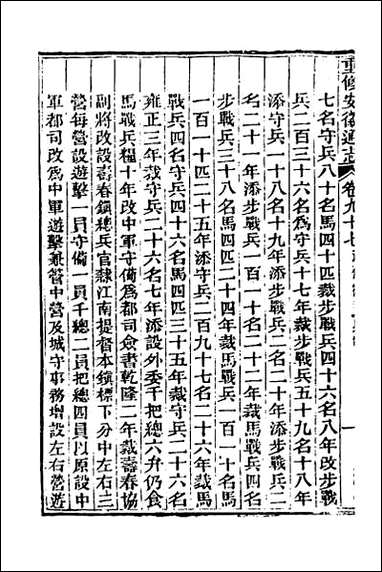 重修安徽通志 卷九十七
七名守兵八十名馬四十匹裁步戰兵四十六名八年改步戰
兵二百三十六名爲守兵十七年裁步戰兵五十九名十八年
添守兵一十八名十九年添步戰兵二名二十年添步戰兵二
名二十一年添步戰兵一百一十名二十二年裁馬戰兵四名
步戰兵三十八名馬四匹二十四年裁馬戰兵一百一十名馬
一百一十匹二十五年添守兵二百九十七名二十六年裁馬
戰兵四名守兵四十六名馬四匹三十五年裁守兵二十六名
雍正三年裁守兵二十六名七年添設外委千把總六弁仍食
馬戰兵糧十年改中軍守備爲都司僉書乾隆二年裁壽春協
副將改設壽春鎭總兵官隸江南提督本鎭標下分中左右三
營每營設遊擊一員守備一員千總二員把總四員以原設中
軍都司改爲中軍遊擊兼管中營及城守事務增設左右營遊